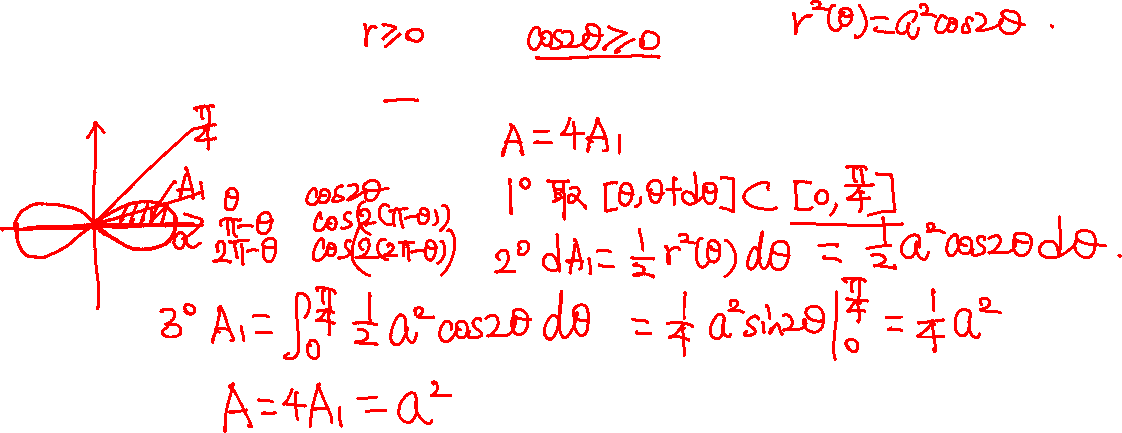 r≥0 cos2θ≥0 r²(θ)=a²cos2θ.
—
π/4
A=4A₁
A₁ θ cos2θ 1° 取 [θ,θ+dθ]⊂[0,π/4]
π-θ cos(2(π-θ))
a 2π-θ cos(2(2π-θ)) 2° dA₁=1/2 r²(θ)dθ = 1/2 a²cos2θdθ.
3° A₁=∫₀^(π/4) 1/2 a²cos2θ dθ = 1/4 a²sin2θ|₀^(π/4) = 1/4 a²
A=4A₁=a²